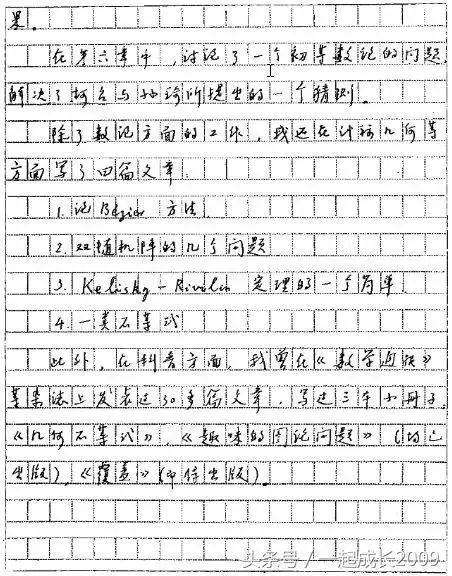 果。
在第六章中,讨论了一个初等数论的问题,
解决了柯召与孙琦所提出的一个猜测。
除了数论方面的工作,我还在计算几何等
方面写了四篇文章.
1. 论Bézier 方法.
2. 双随机阵的几个问题
3. Kelisky-Rivlin 定理的一个简单
4. 一类不等式
此外,在科普方面,我曾在《数学通讯》
等杂志上发表过30多篇文章,写过三本小册子,
《几何不等式》,《趣味的图论问题》(均已
出版),《覆盖》(即将出版)。
头条号 / 一起成长2009